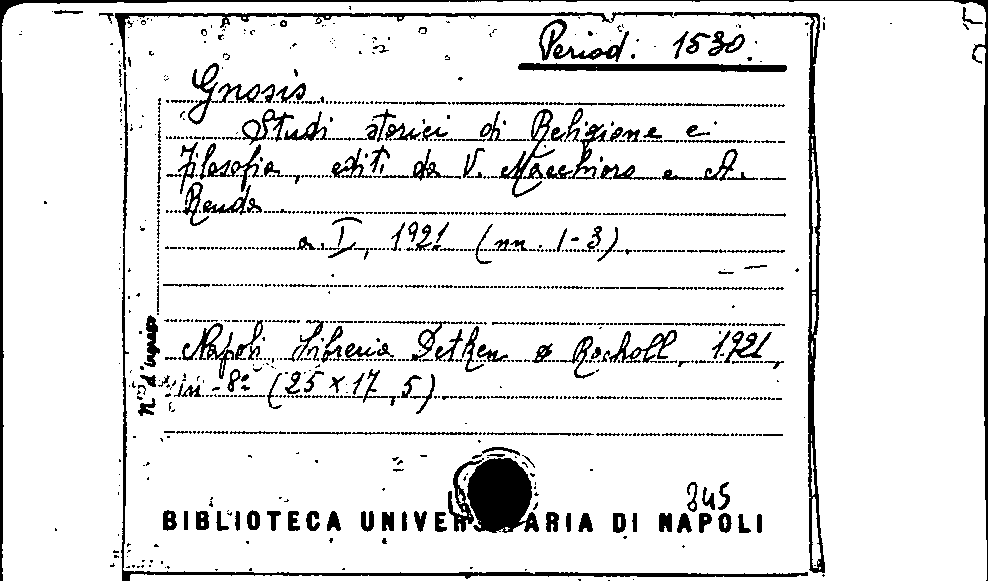 Period. 1530.
Gnosis.
Studi storici di Religione e
filosofia, editi da V. Macchioro e A.
Renda.
a. I, 1921 (nn. 1-3).
Napoli, Libreria Detken & Rocholl, 1921,
in-8º (25 x 17,5).
N.º d'ingresso
845
BIBLIOTECA UNIVERSITARIA DI NAPOLI